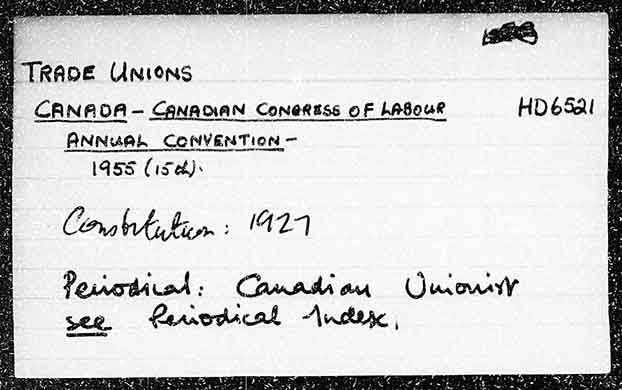 TRADE UNIONS
CANADA - CANADIAN CONGRESS OF LABOUR HD6521
ANNUAL CONVENTION -
1955 (15th).
Constitution: 1927
Periodical: Canadian Unionist
see Periodical Index.